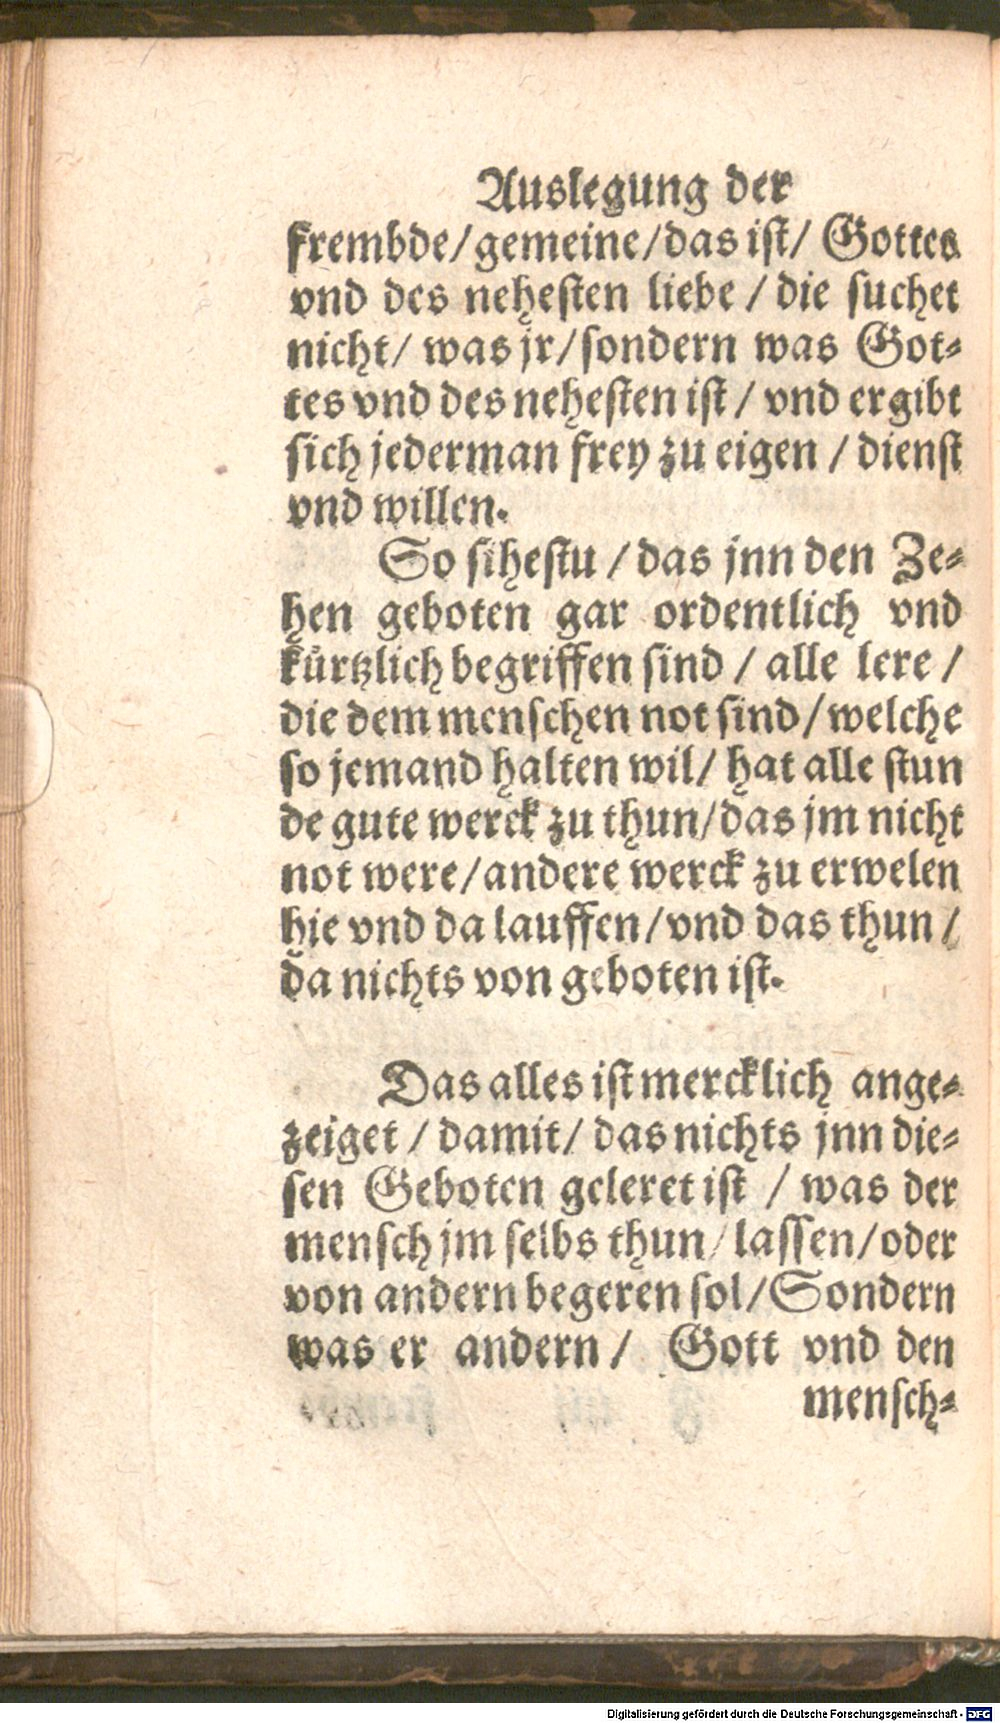 Auslegung der
frembde/ gemeine/ das ist/ Gottes
vnd des nehesten liebe / die suchet
nicht/ was jr/ sondern was Got-
tes vnd des nehesten ist / vnd ergibt
sich jederman frey zu eigen / dienst
vnd willen.
So sihestu / das jnn den Ze-
hen geboten gar ordentlich vnd
kürtzlich begriffen sind / alle lere /
die dem menschen not sind/ welche
so jemand halten wil/ hat alle stun
de gute werck zu thun/ das jm nicht
not were/ andere werck zu erwelen
hie vnd da lauffen/ vnd das thun /
da nichts von geboten ist.
Das alles ist mercklich ange-
zeiget / damit/ das nichts jnn die-
sen Geboten geleret ist / was der
mensch jm selbs thun/ lassen/ oder
von andern begeren sol/ Sondern
was er andern / Gott vnd den
mensch-
Digitalisierung gefördert durch die Deutsche Forschungsgemeinschaft - DFG